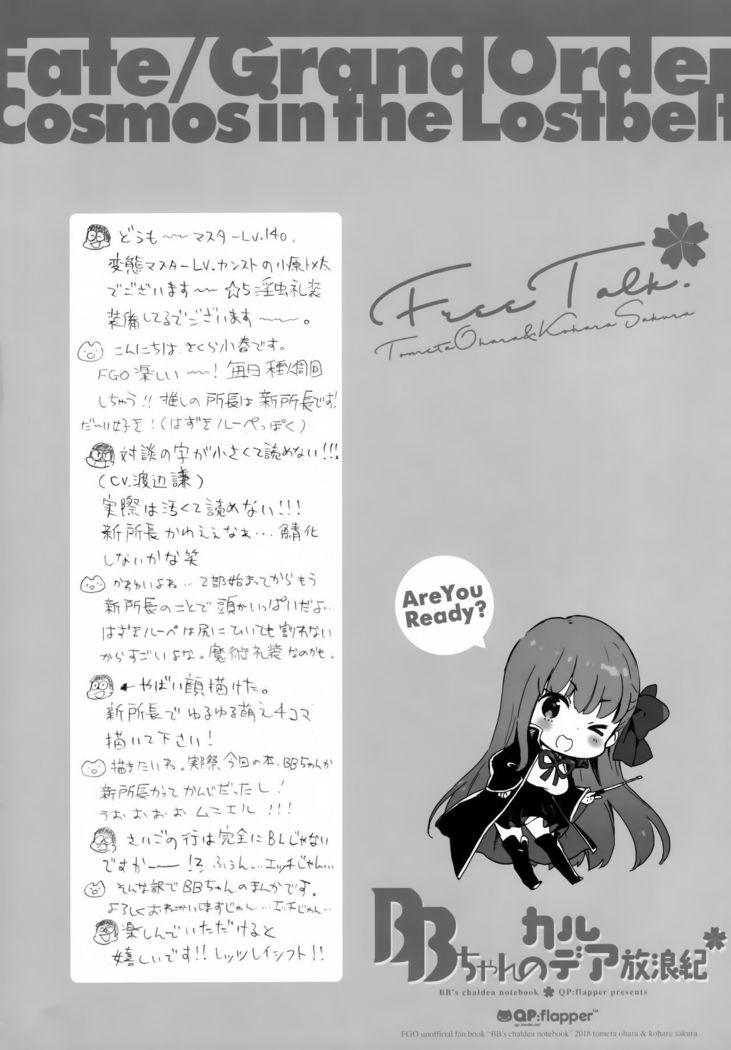 Fate/Grand Order
Cosmos in the Lostbelt
Free Talk.
Tometa Ohara & Koharu Sakura
どうも〜〜マスターLv.140、
変態マスターLV.カンストの小原トメ太
でございます〜〜☆5淫虫礼装
装備してるでございます〜〜〜。
こんにちは、さくら小春です。
FGO楽しい〜〜!毎日種火周回
しちゃう!!推しの所長は新所長です!
だ〜い好き!(はずきルーペっぽく)
対談の字が小さくて読めない!!!
(CV.渡辺謙)
実際は汚くて読めない!!!
新所長かわええなぁ…鯖化
しないかな笑
かわいいよね…2部始まってからもう
新所長のことで頭がいっぱいだよ…
はずきルーペは尻にひいても割れない
からすごいよな。魔術礼装なのかも。
←やばい顔描けた。
新所長でゆるゆる萌え4コマ
描いて下さい!
描きたいね。実際今回の本、BBちゃんか
新所長かってかんじだったし!
うおおおおムニエル!!!
さいごの行は完全にBLじゃない
ですか――!?ふぅん…エッチじゃん…
そんな訳でBBちゃんのまんがです。
よろしくおねがいしますじゃん…エッチじゃん…
楽しんでいただけると
嬉しいです!!レッツレイシフト!!
Are You
Ready?
BBちゃんのカルデア放浪紀
BB's chaldea notebook QP:flapper presents
QP:flapper™
FGO unofficial fan book "BB's chaldea notebook" 2018 tometa ohara & koharu sakura